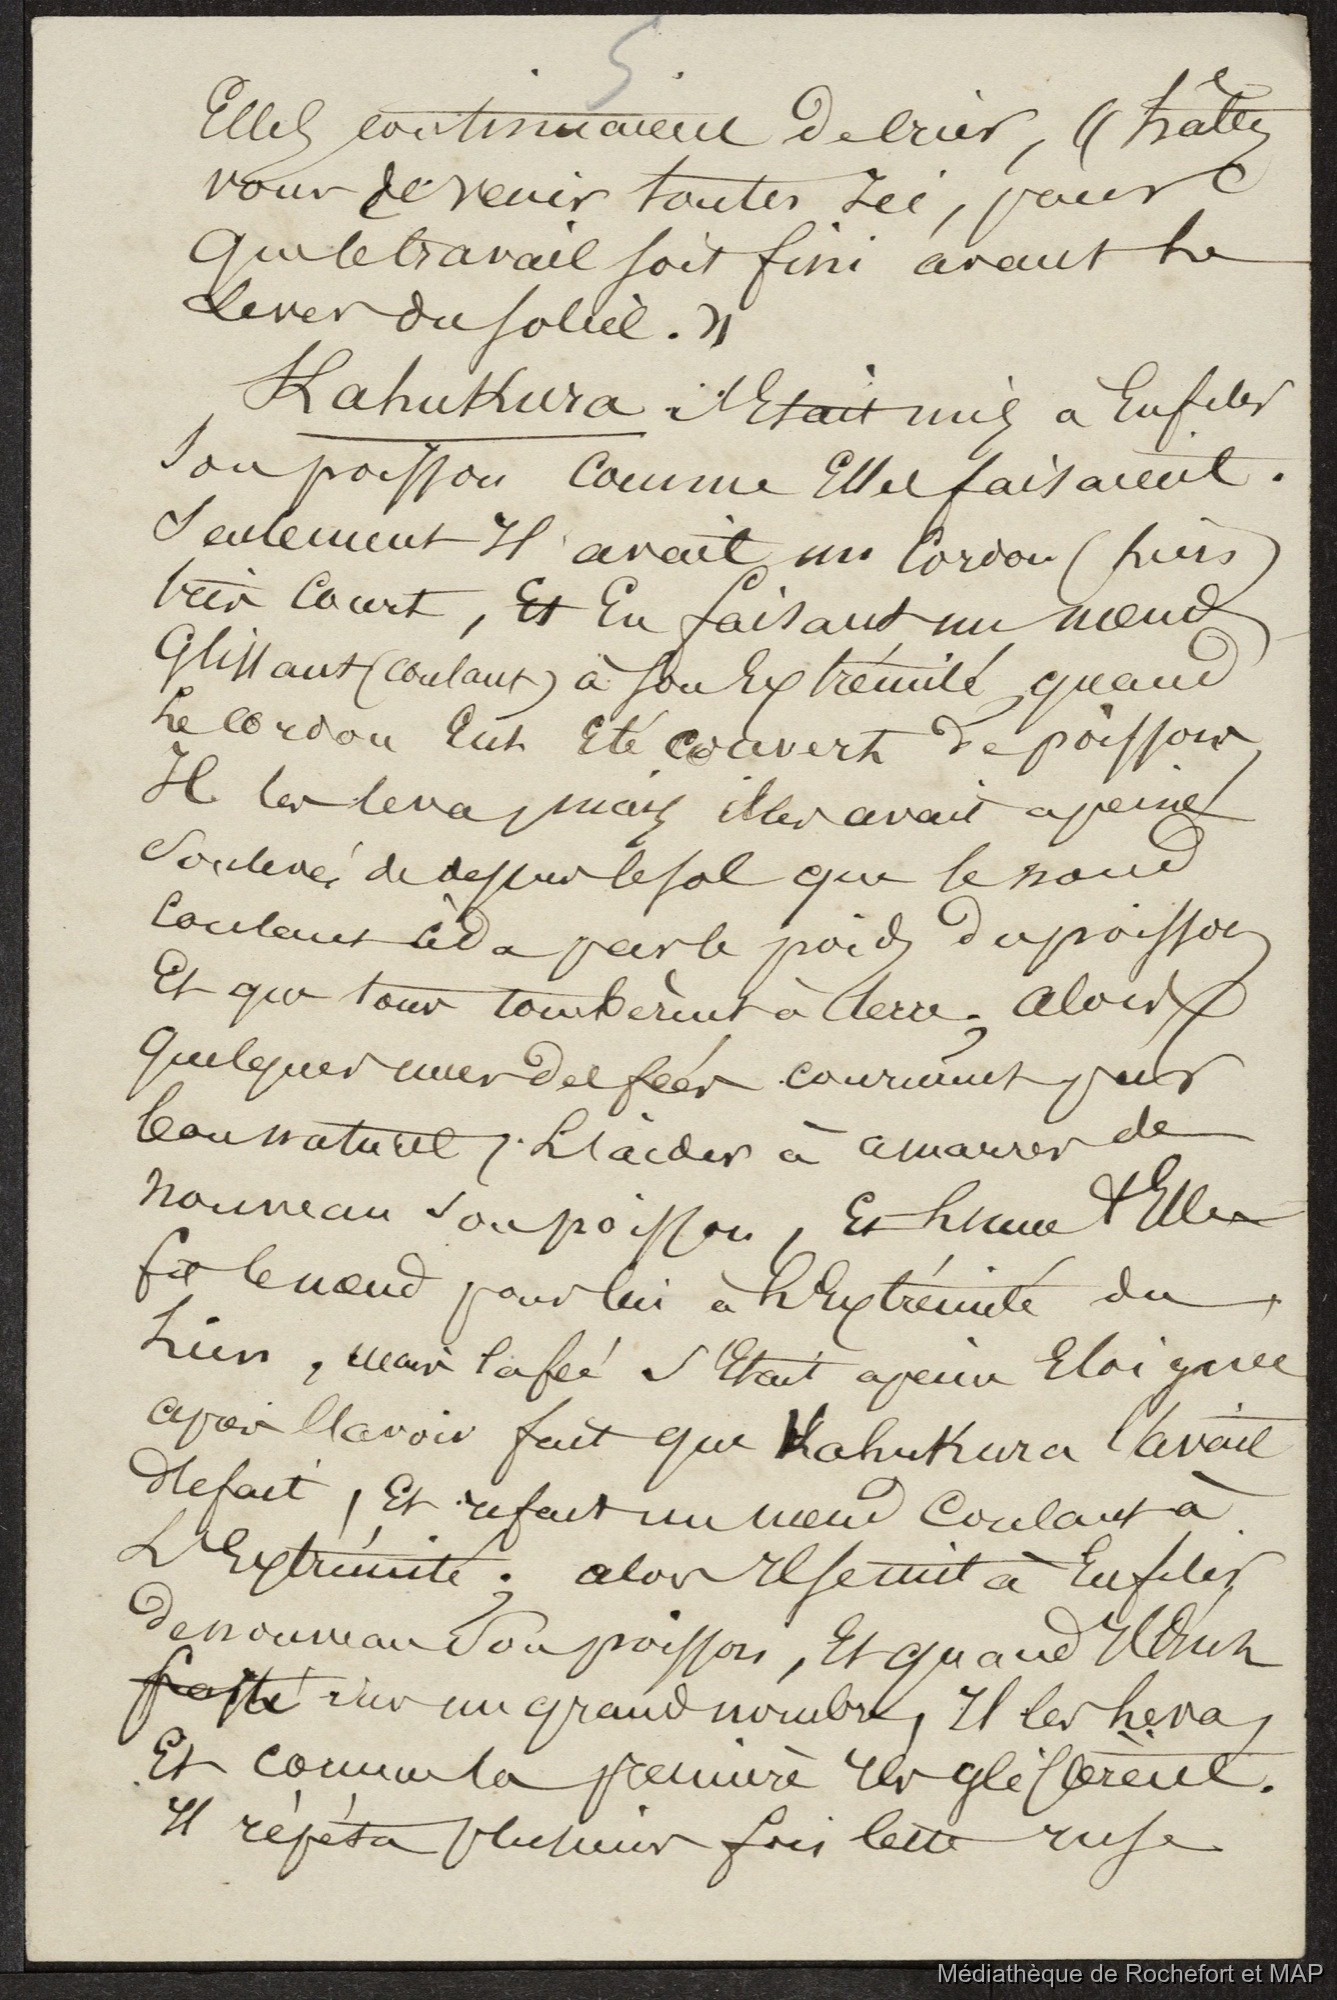 5
Elles continuaient de crier, « hâtez
vous de venir toutes Ici, pour
que le travail soit fini avant le
lever du soleil. »
Kahukura s'Etait mis à Enfiler
son poisson comme Elles faisaient.
Seulement Il avait un Cordon (liens)
très Court, Et En faisant un nœud
Glissant (coulant) à son Extrémité, quand
le cordon Eut Eté couvert de poissons,
Il les leva, mais il les avait a peine
Soulevés de dessus le sol que le nœud
coulant céda par le poids du poisson
Et que tous tombèrent à terre; alors
quelques unes des fées coururent par
bon naturel, L'aider à amarrer de
nouveau son poisson, Et l'une d'Elles
fit le nœud pour lui à L'Extrémité du
Lien, mais la feé s'Etait a peine Eloignee
après l'avoir fait que Kahukura l'avait
défait, Et refait un nœud Coulant à
L'Extrémité; alors Il se mit à Enfiler
de nouveau son poisson, Et quand Il En Eut
sur un grand nombre, Il les leva,
Et comme la premierè Ils glissèrent.
Il répéta plusieurs fois cette ruse
Médiathèque de Rochefort et MAP